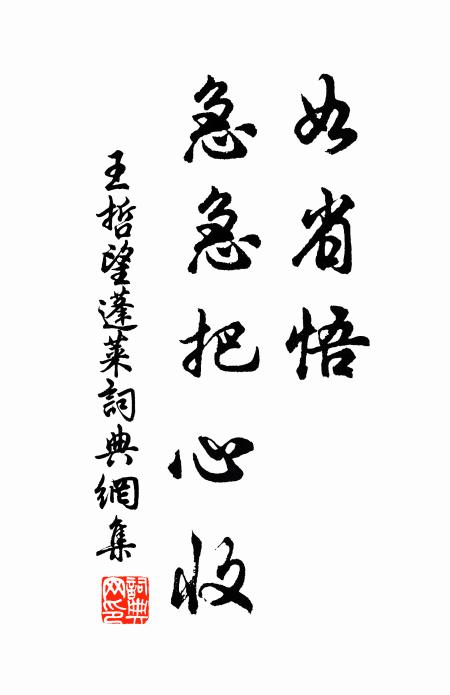 如省悟
急急把心收
王哲望蓬萊詞典網集
詞典
网印